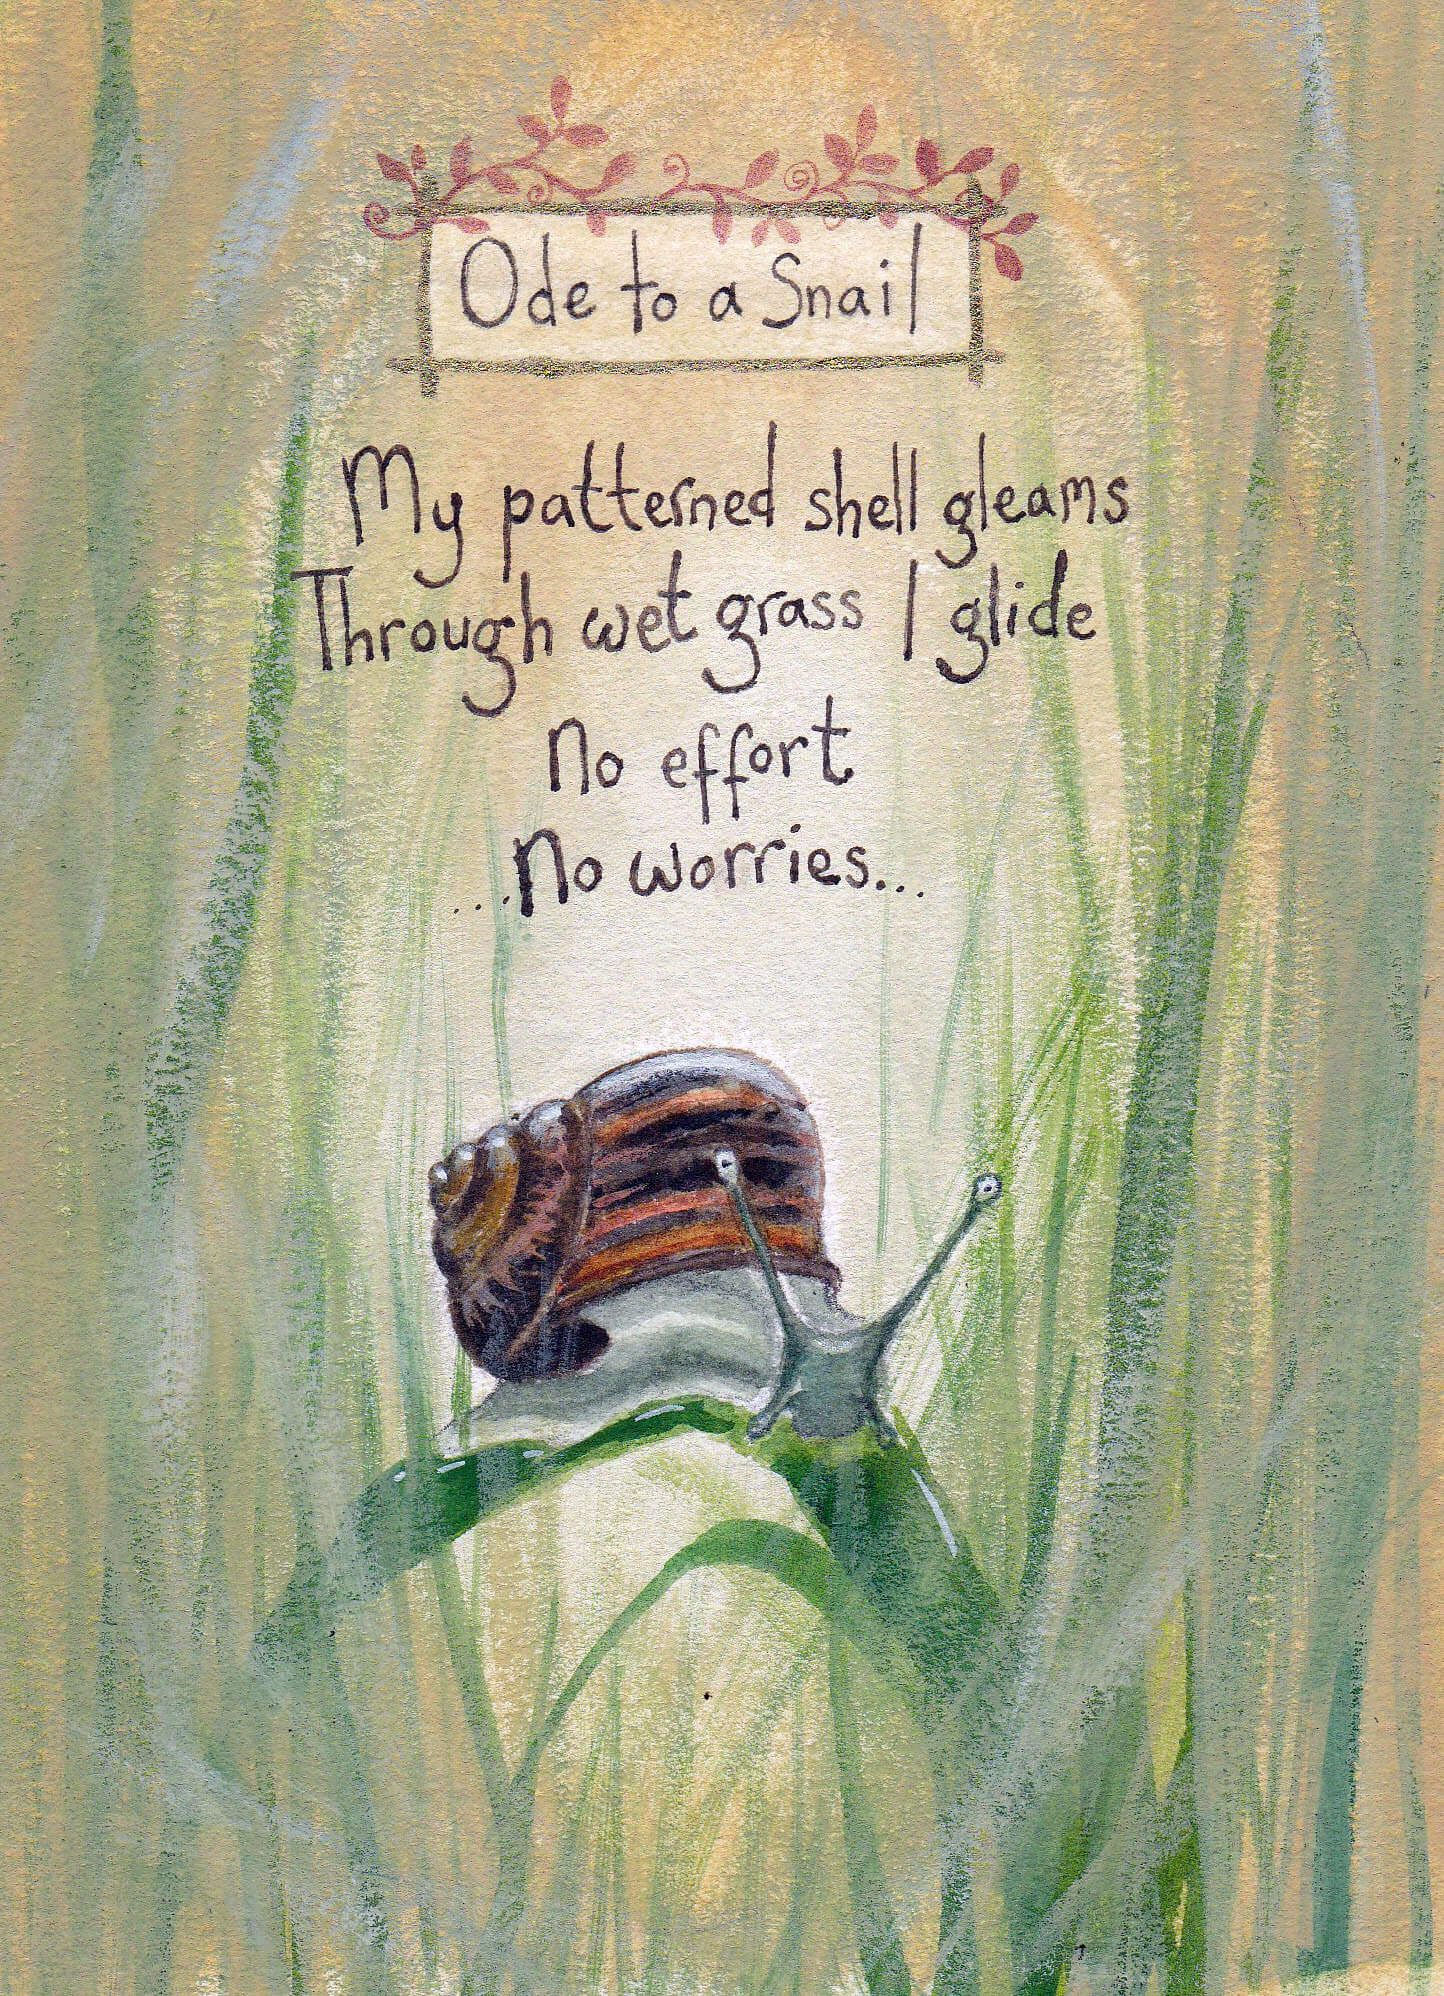 Ode to a Snail
My patterned shell gleams
Through wet grass I glide
No effort
...No worries...